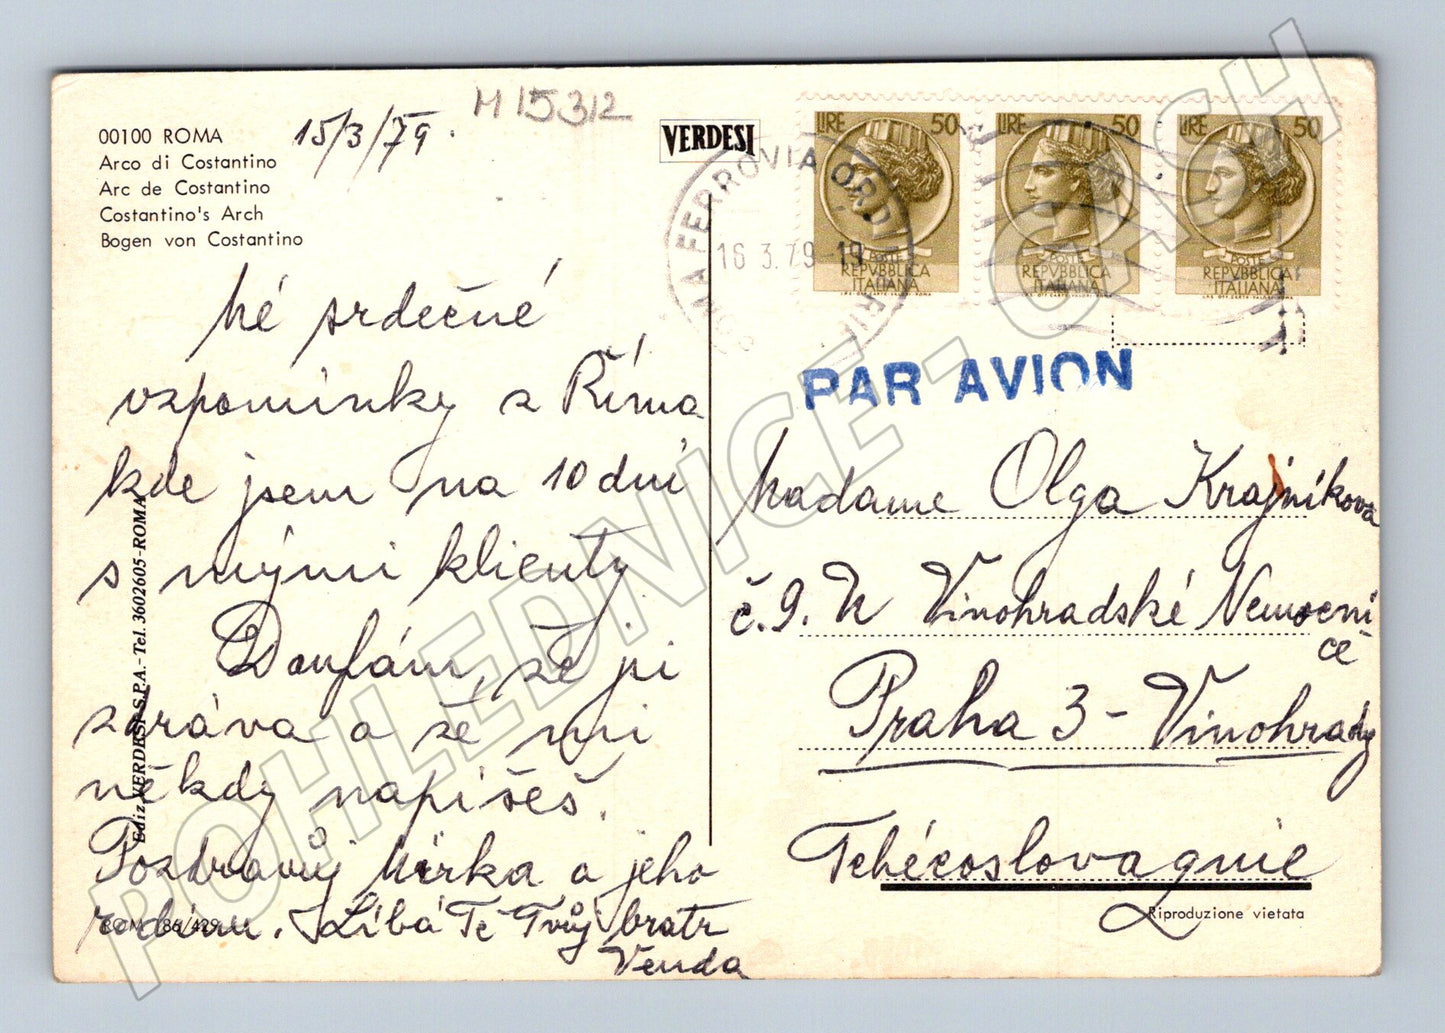 M 15312
15/3/79.
00100 ROMA
Arco di Costantino
Arc de Costantino
Costantino's Arch
Bogen von Costantino
VERDESI
LIRE 50
POSTE
REPVBBLICA
ITALIANA
I.P.S. OFF. CARTE-VALORI-ROMA
LIRE 50
POSTE
REPVBBLICA
ITALIANA
I.P.S. OFF. CARTE-VALORI-ROMA
LIRE 50
POSTE
REPVBBLICA
ITALIANA
I.P.S. OFF. CARTE-VALORI-ROMA
ROMA FERROVIA ORD
16 3.79 19
PAR AVION
Mé srdečné
vzpomínky z Říma
kde jsem na 10 dní
s mými klienty.
Doufám, že ji
zpráva a že mi
někdy napíšeš.
Pozdravuj Mirka a jeho
rodinu. Líbá Tě Tvůj bratr
Venda
Madame Olga Krajníková
č.9. U Vinohradské Nemocni
ce
Praha 3 - Vinohrady
Tchécoslovaquie
Ediz. VERDESI S.P.A. - Tel. 3602605 - ROMA
86/429
Riproduzione vietata
POHLEDNICE - CASH